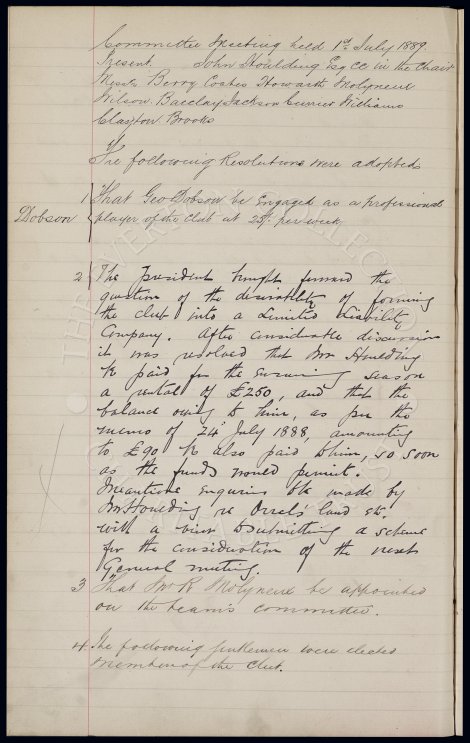 Committee Meeting held 1st July 1889.
Present John Houlding Esq CC in the Chair
Messrs Berry Coates Howarth Molyneux
Wilson Barclay Jackson Currier Williams
Clayton Brooks
The following Resolutions were adopted
1 That Geo Dobson be Engaged as a professional
Dobson
player of the club at 25/- per week
2 The President brought forward the
question of the desirability of forming
the club into a Limited Liability
Company. After considerable discussion
it was resolved that Mr Houlding
be paid for the ensuing season
a rental of £250, and that the
balance owing to him, as per the
memo of 24 July 1888, amounting
to £90 be also paid to him, so soon
as the funds would permit.
Meantime inquiries to be made by
Mr Houlding re Orrel's land etc.
with a view to submitting a scheme
for the consideration of the next
General meeting.
3 That Mr R Molyneux be appointed
on the team's committee.
4 The following gentlemen were elected
members of the club.
THE EVERTON COLLECTION